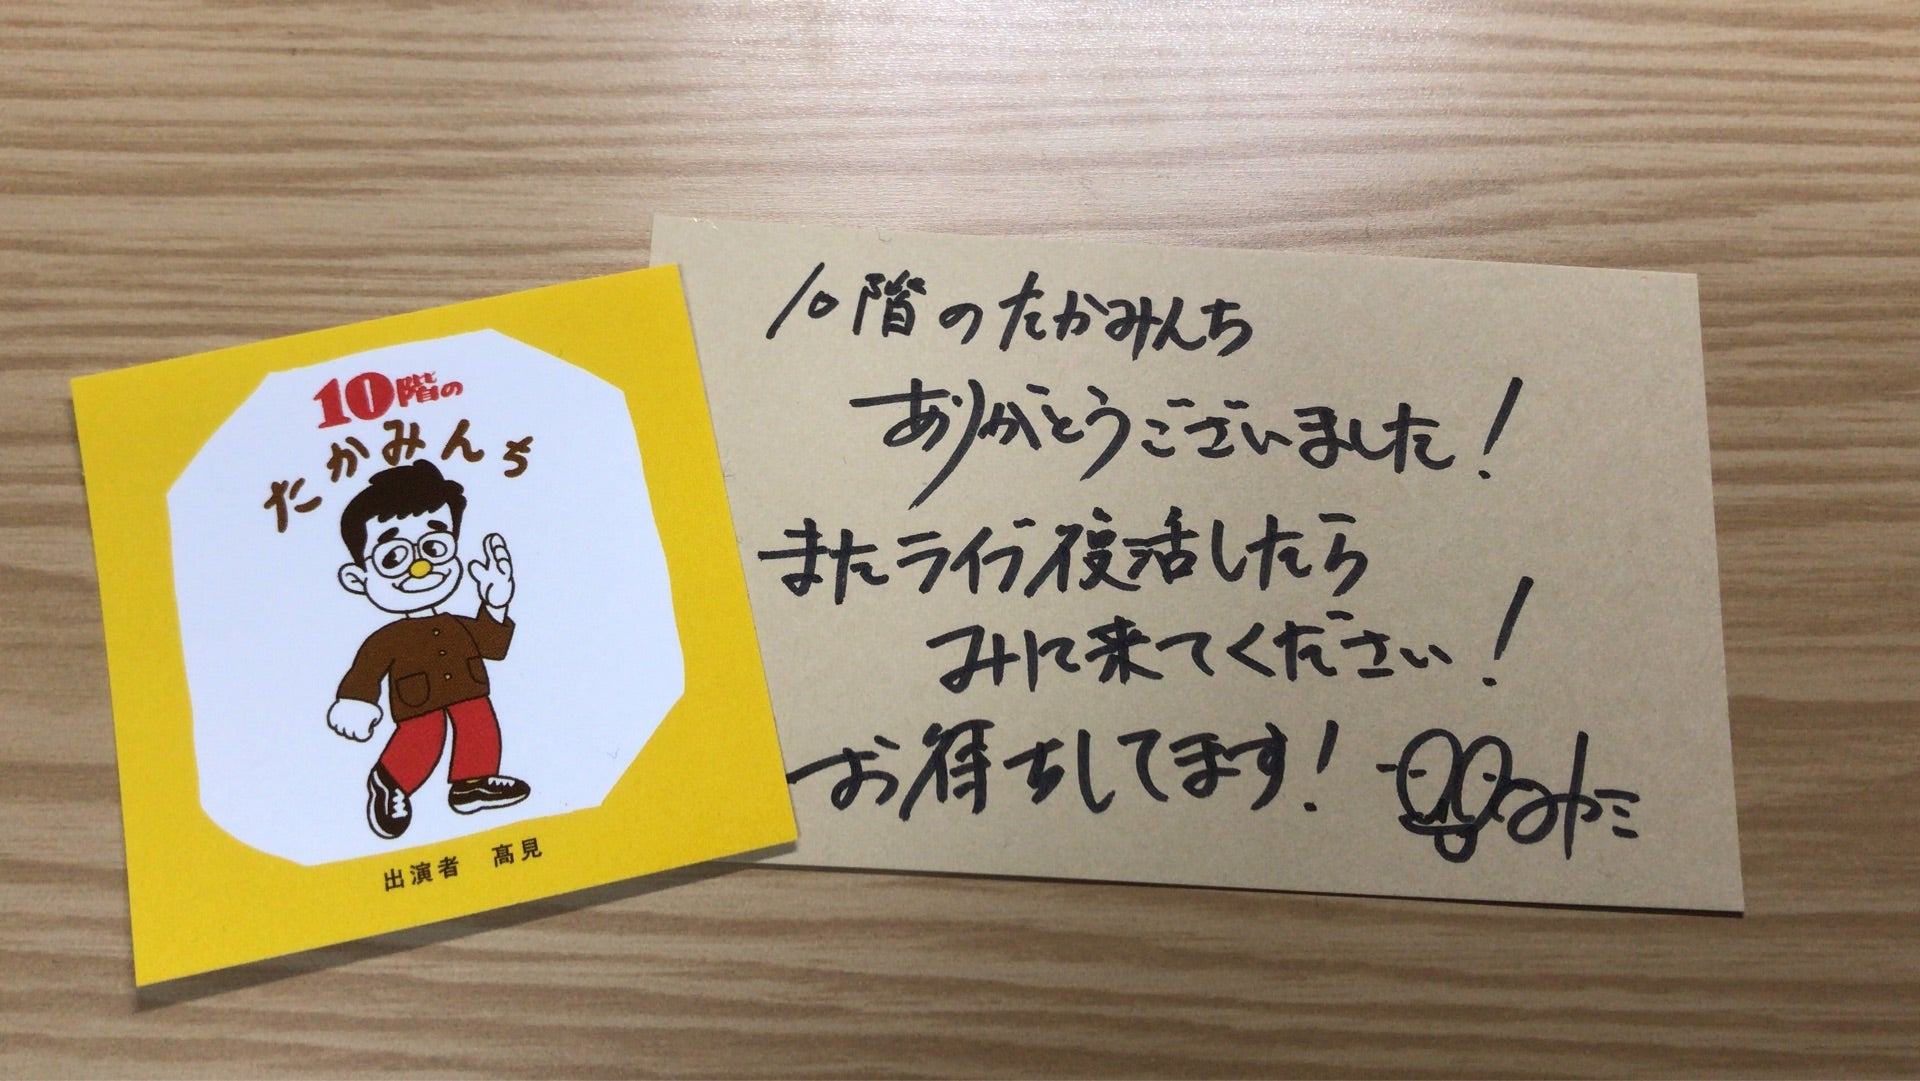 10階の
たかみんち
出演者 髙見
10階のたかみんち
ありがとうございました!
またライブ復活したら
みに来てください!
お待ちしてます!